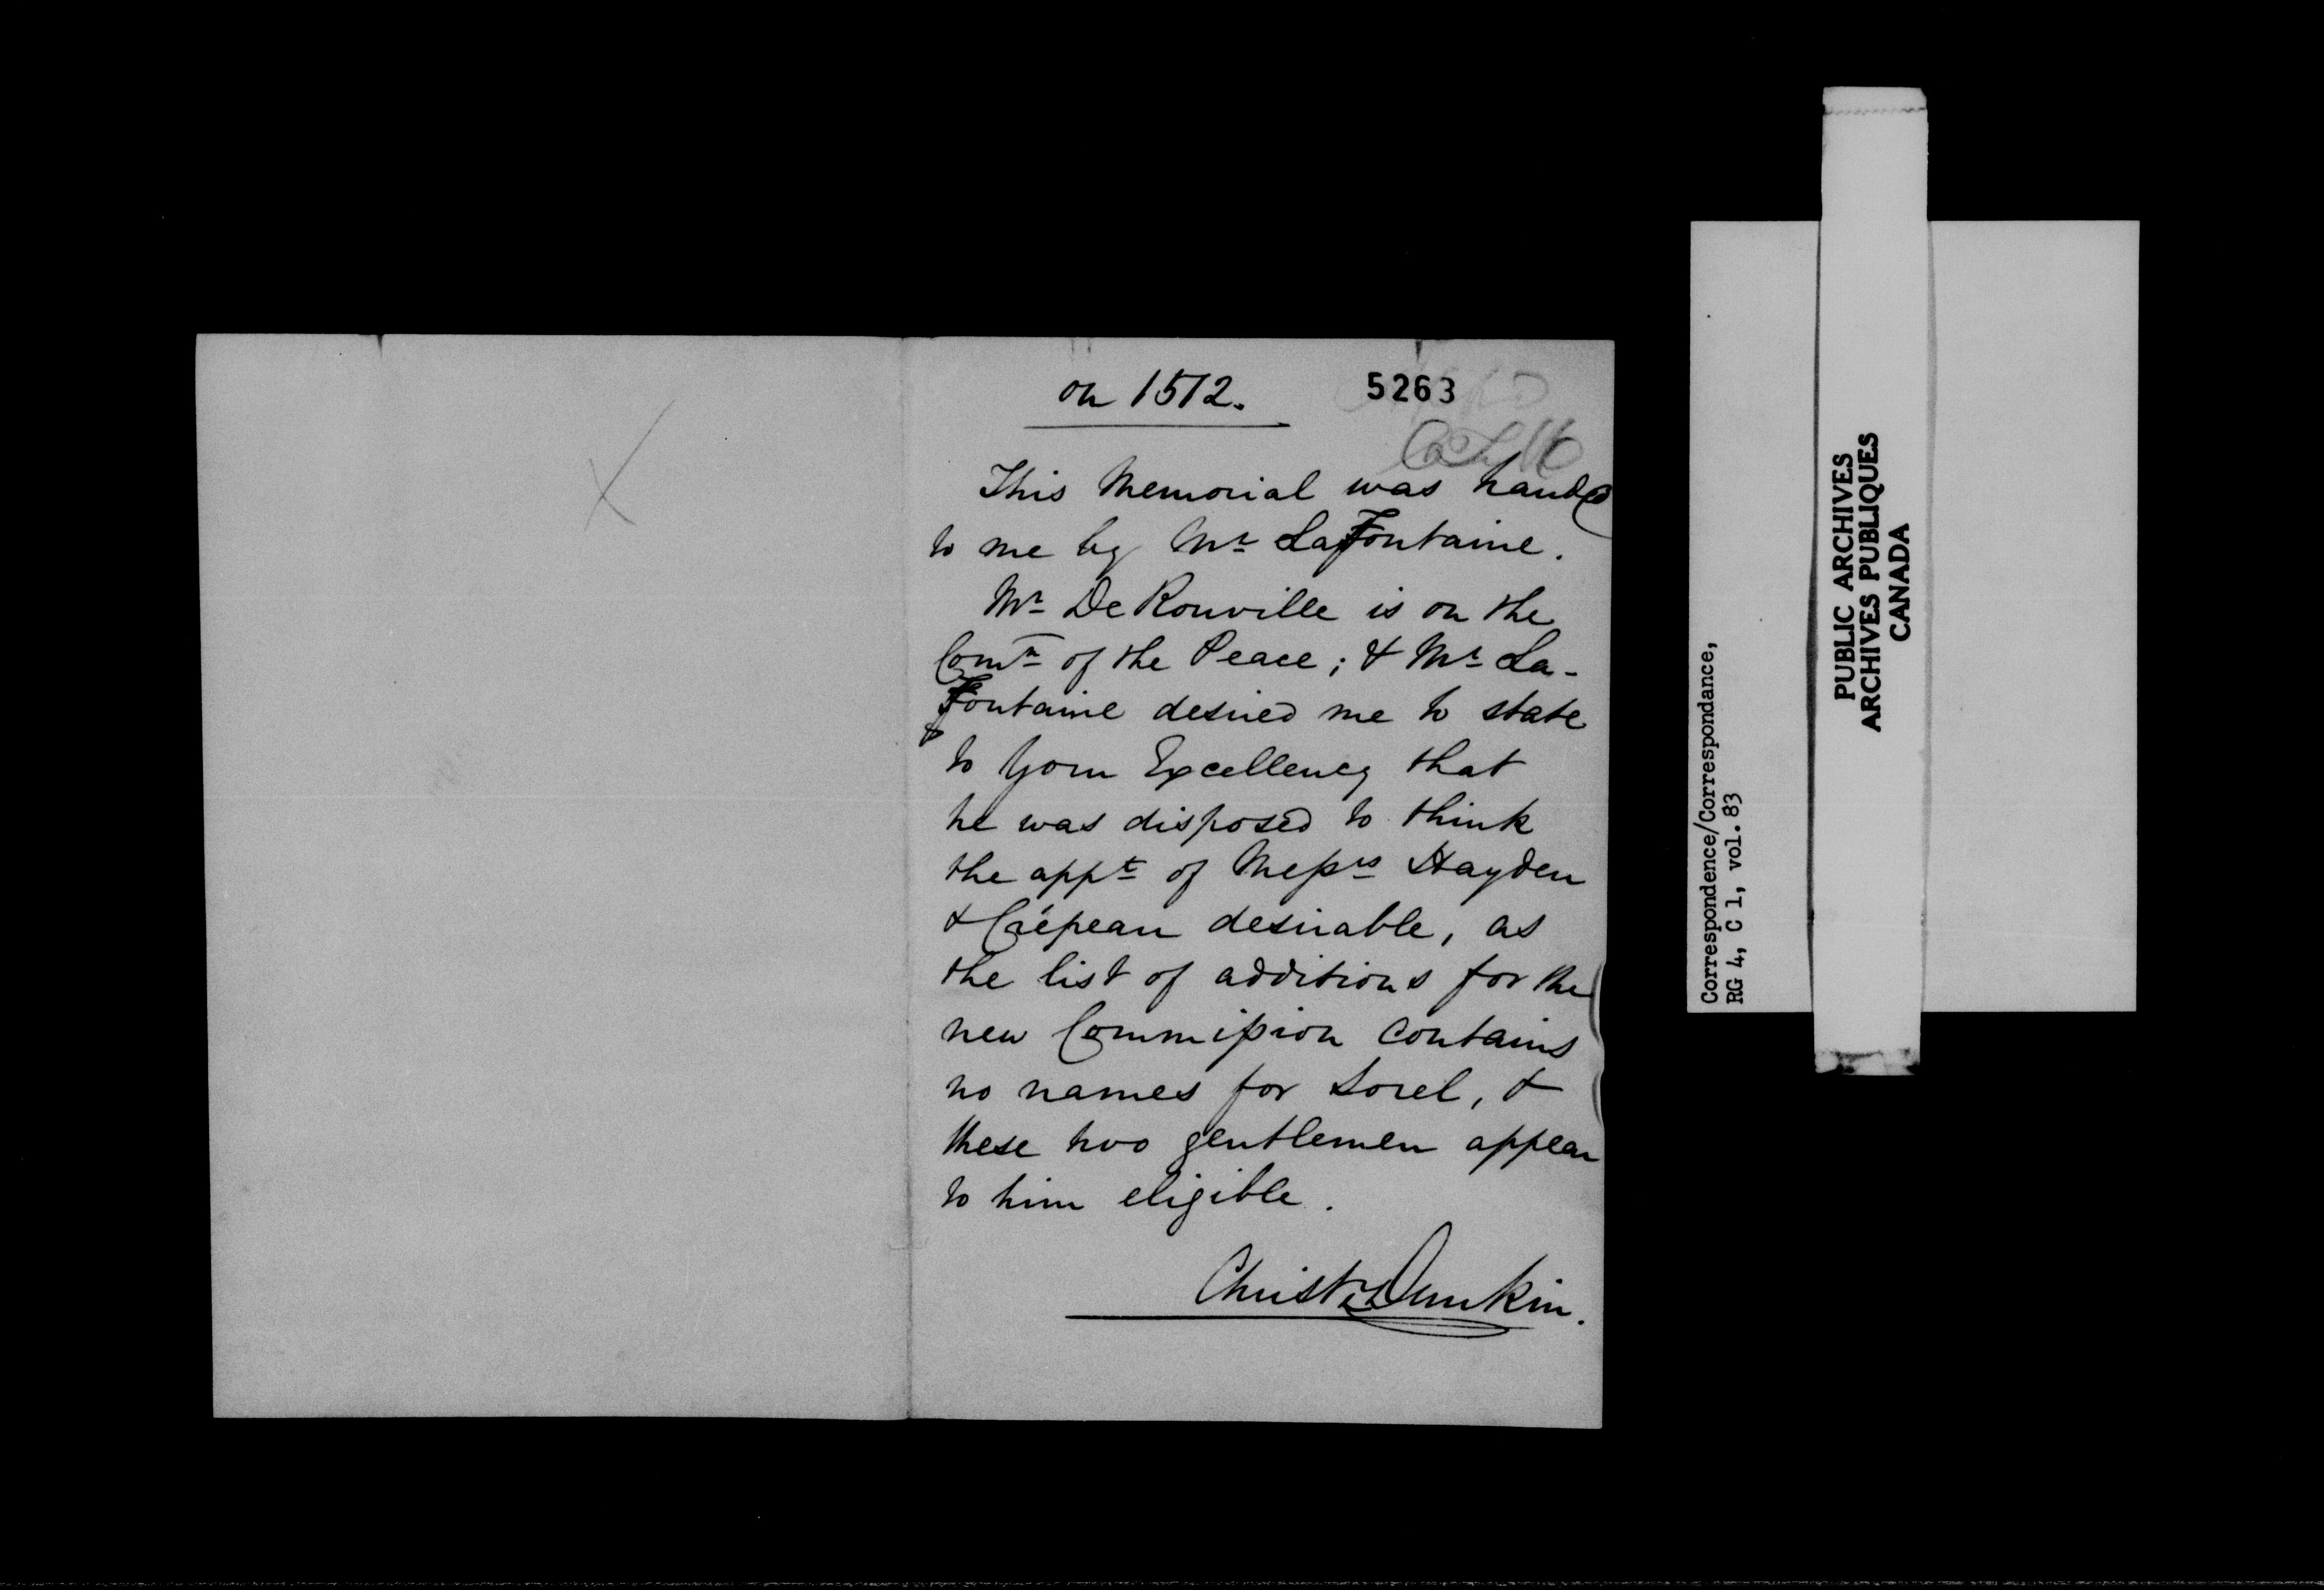 on 1572.
5263
This Memorial was handed
to me by Mr LaFontaine.
Mr De Rouville is on the
Comn of the Peace; & Mr La-
Fontaine desired me to state
to Your Excellency that
he was disposed to think
the appt of Messrs Hayden
& Crépeau desirable, as
the list of additions for the
new Commission contains
no names for Sorel, &
these two gentlemen appear
to him eligible.
Christr Dunkin.
Correspondence/Correspondance,
RG 4, C 1, vol. 83
PUBLIC ARCHIVES
ARCHIVES PUBLIQUES
CANADA